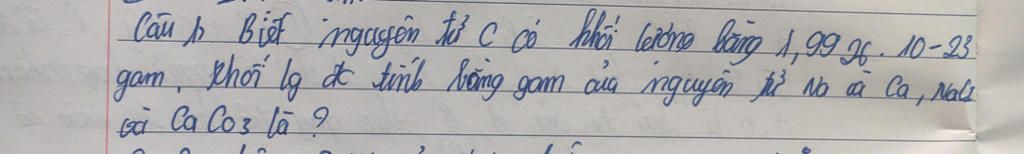 Câu 1: Biết nguyên tử C có khối lượng bằng 1,9926. 10-23
gam, khối lg đc tính bằng gam của nguyên tử Na và Ca, NaCl
và CaCo3 là ?